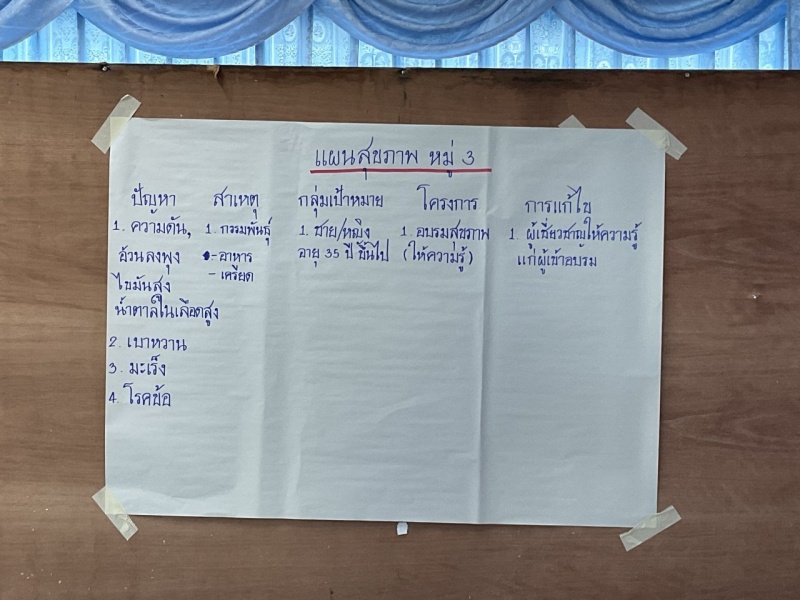 แผนสุขภาพ หมู่ 3
ปัญหา สาเหตุ กลุ่มเป้าหมาย โครงการ การแก้ไข
1. ความดัน, 1. กรรมพันธุ์ 1. ชาย/หญิง 1. อบรมสุขภาพ 1. ผู้เชี่ยวชาญให้ความรู้
อ้วนลงพุง - อาหาร อายุ 35 ปี ขึ้นไป (ให้ความรู้) แก่ผู้เข้าอบรม
ไขมันสูง - เครียด
น้ำตาลในเลือดสูง
2. เบาหวาน
3. มะเร็ง
4. โรคข้อ